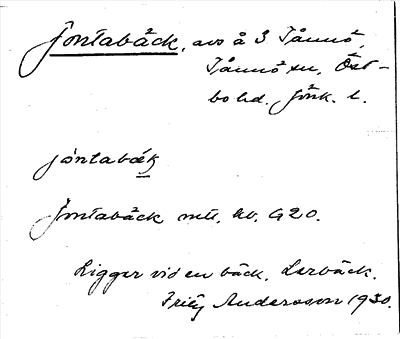 Jontabäck, avs å 3 Tånnö,
Tånnö sn, Öst-
bo hd. Jönk. l.
jóntabäk
Jontabäck mtl. Av. G20.
Ligger vid en bäck, Lerbäck.
Fritz Andersson 1930.